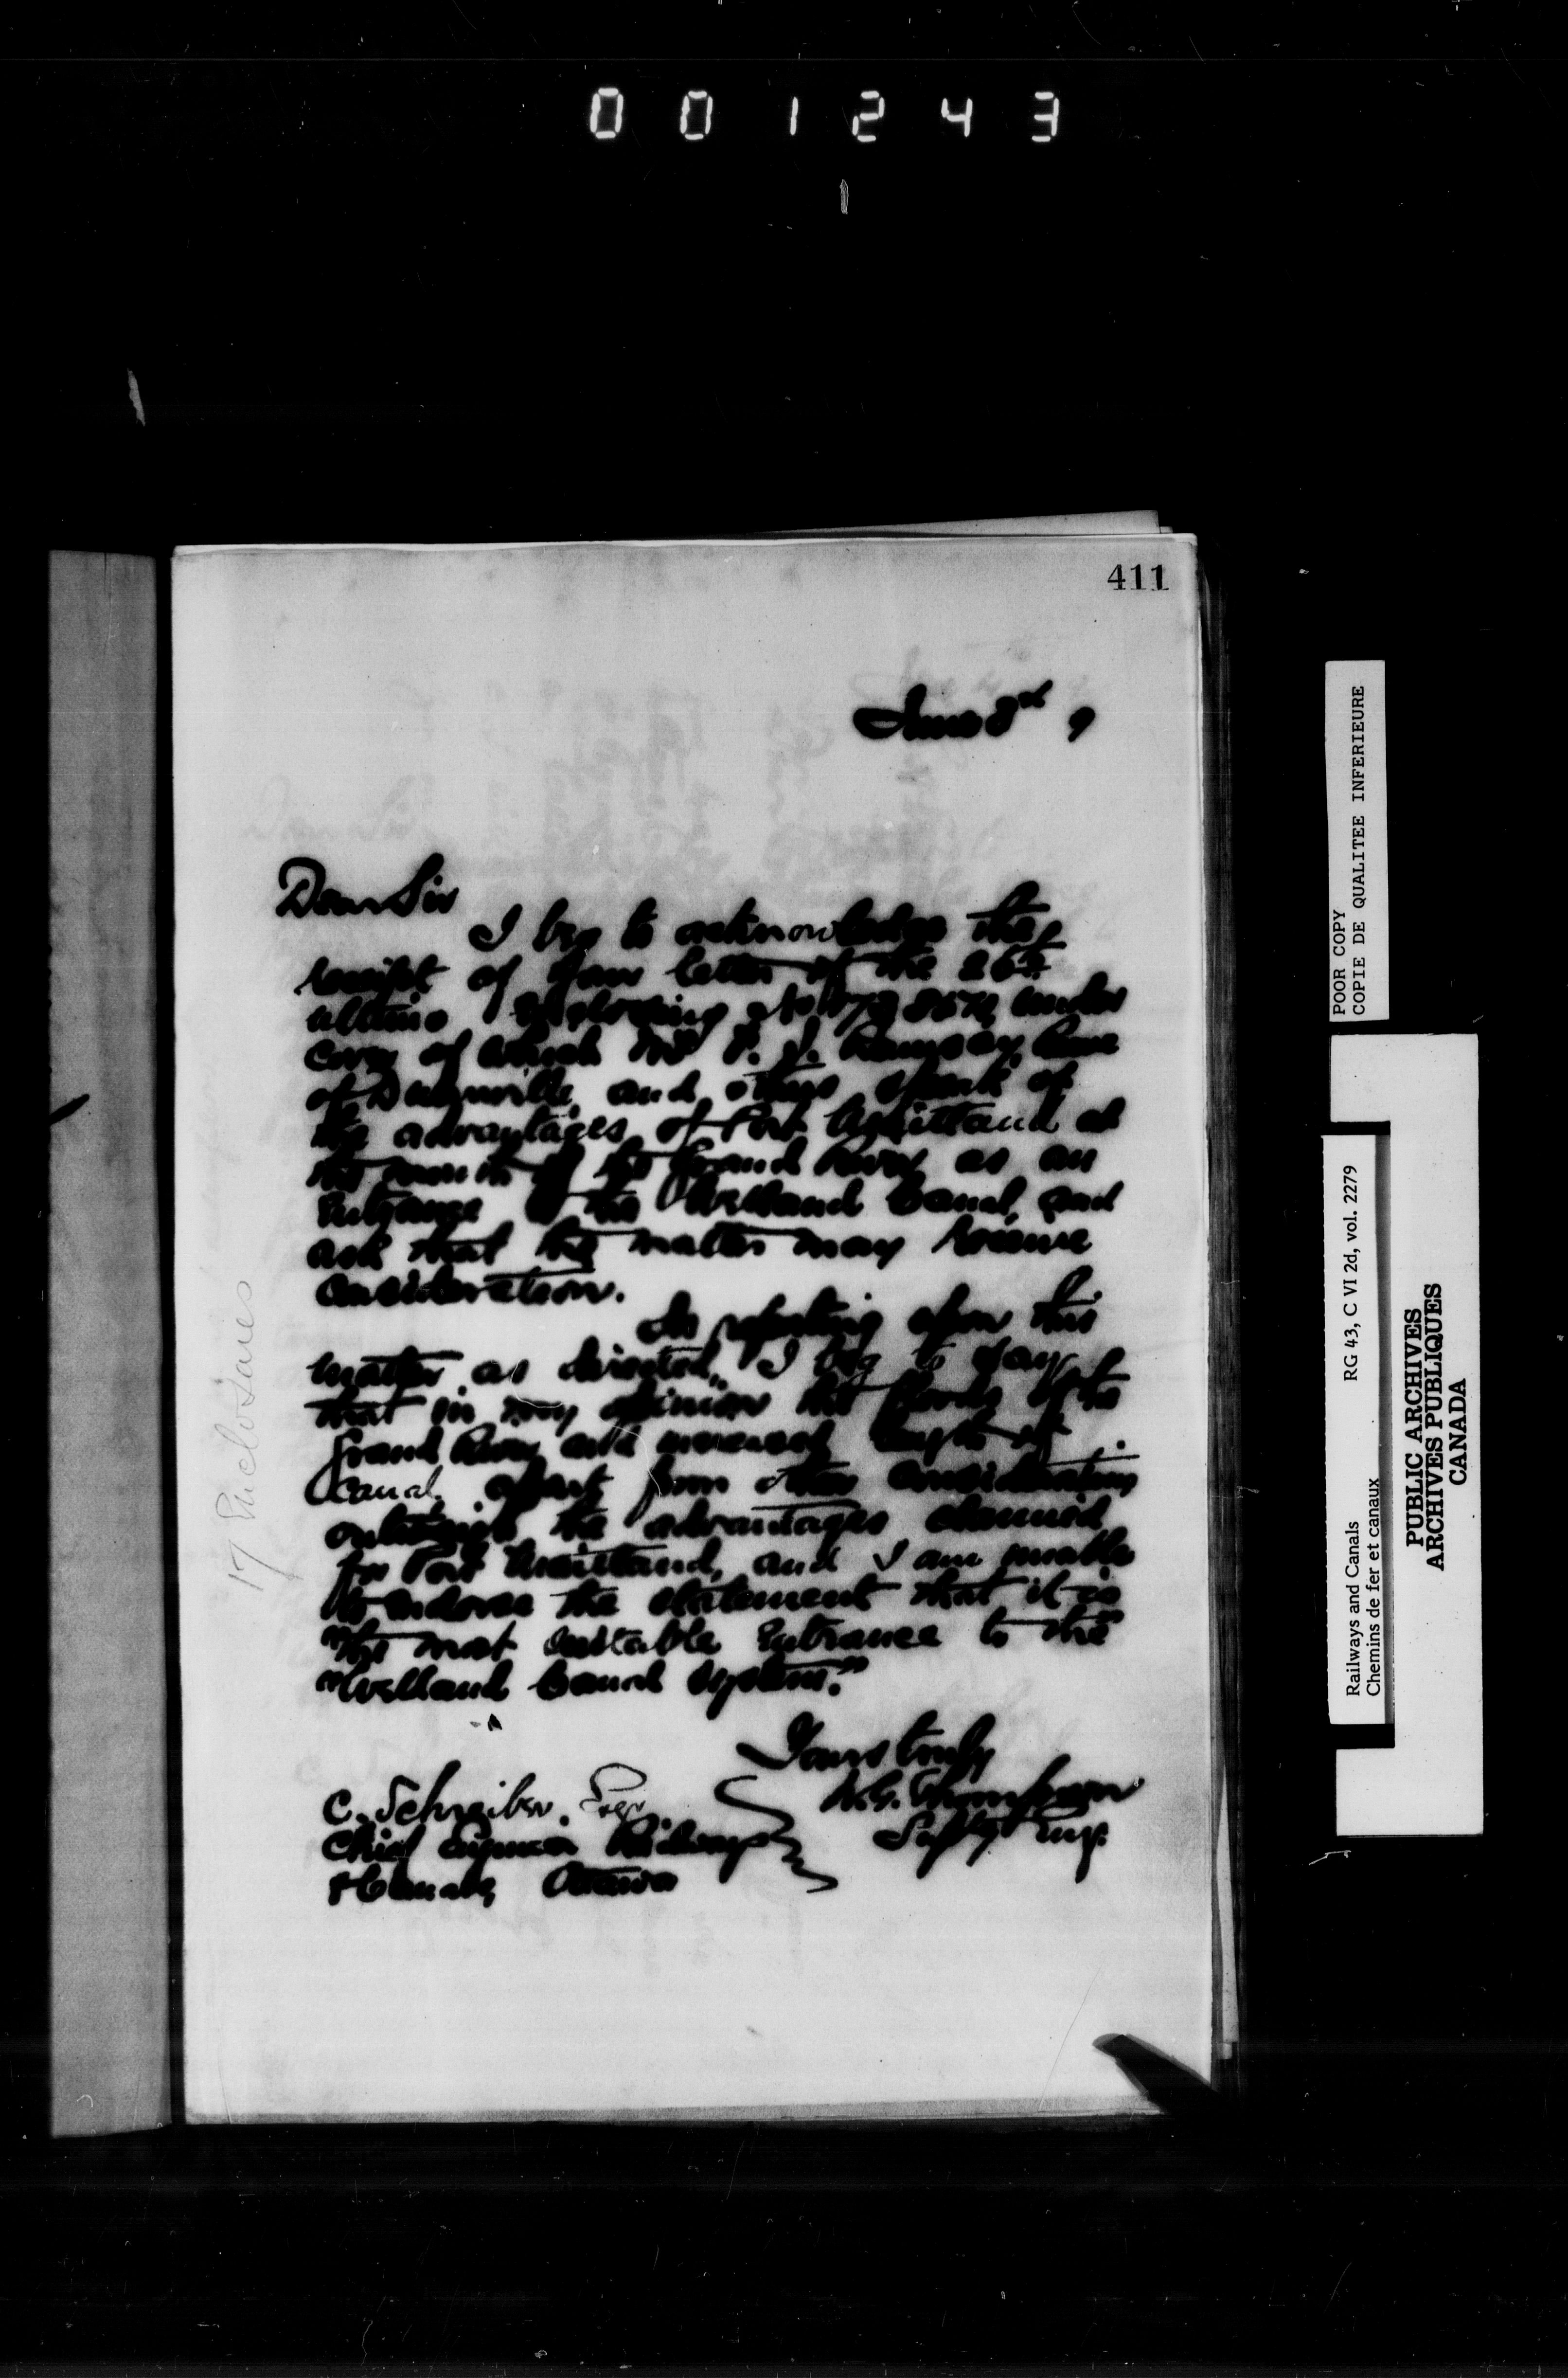 001243
411
June 8th 9
Dear Sir
I beg to acknowledge the
receipt of your letter of the 26th
ultimo enclosing No under
cover of which Mr Ramsay, Reeve
of Dunnville and others speak of
the advantages of Port Maitland at
the mouth of the Grand River as an
Entrance to the Welland Canal, and
ask that the matter may receive
consideration.
In reporting upon this
matter as directed, I beg to say
that in my opinion the floods of the
Grand River and increased length of
Canal, apart from other considerations
outweigh the advantages claimed
for Port Maitland, and I am unable
to endorse the statement that it is
"the most suitable Entrance to the"
"Welland Canal system."
Yours truly
W.G. Thompson
Suptg Eng.
C. Schreiber, Esqr.
Chief Engineer Railways
& Canals, Ottawa
17 Enclosures
POOR COPY
COPIE DE QUALITEE INFERIEURE
Railways and Canals RG 43, C VI 2d, vol. 2279
Chemins de fer et canaux
PUBLIC ARCHIVES
ARCHIVES PUBLIQUES
CANADA